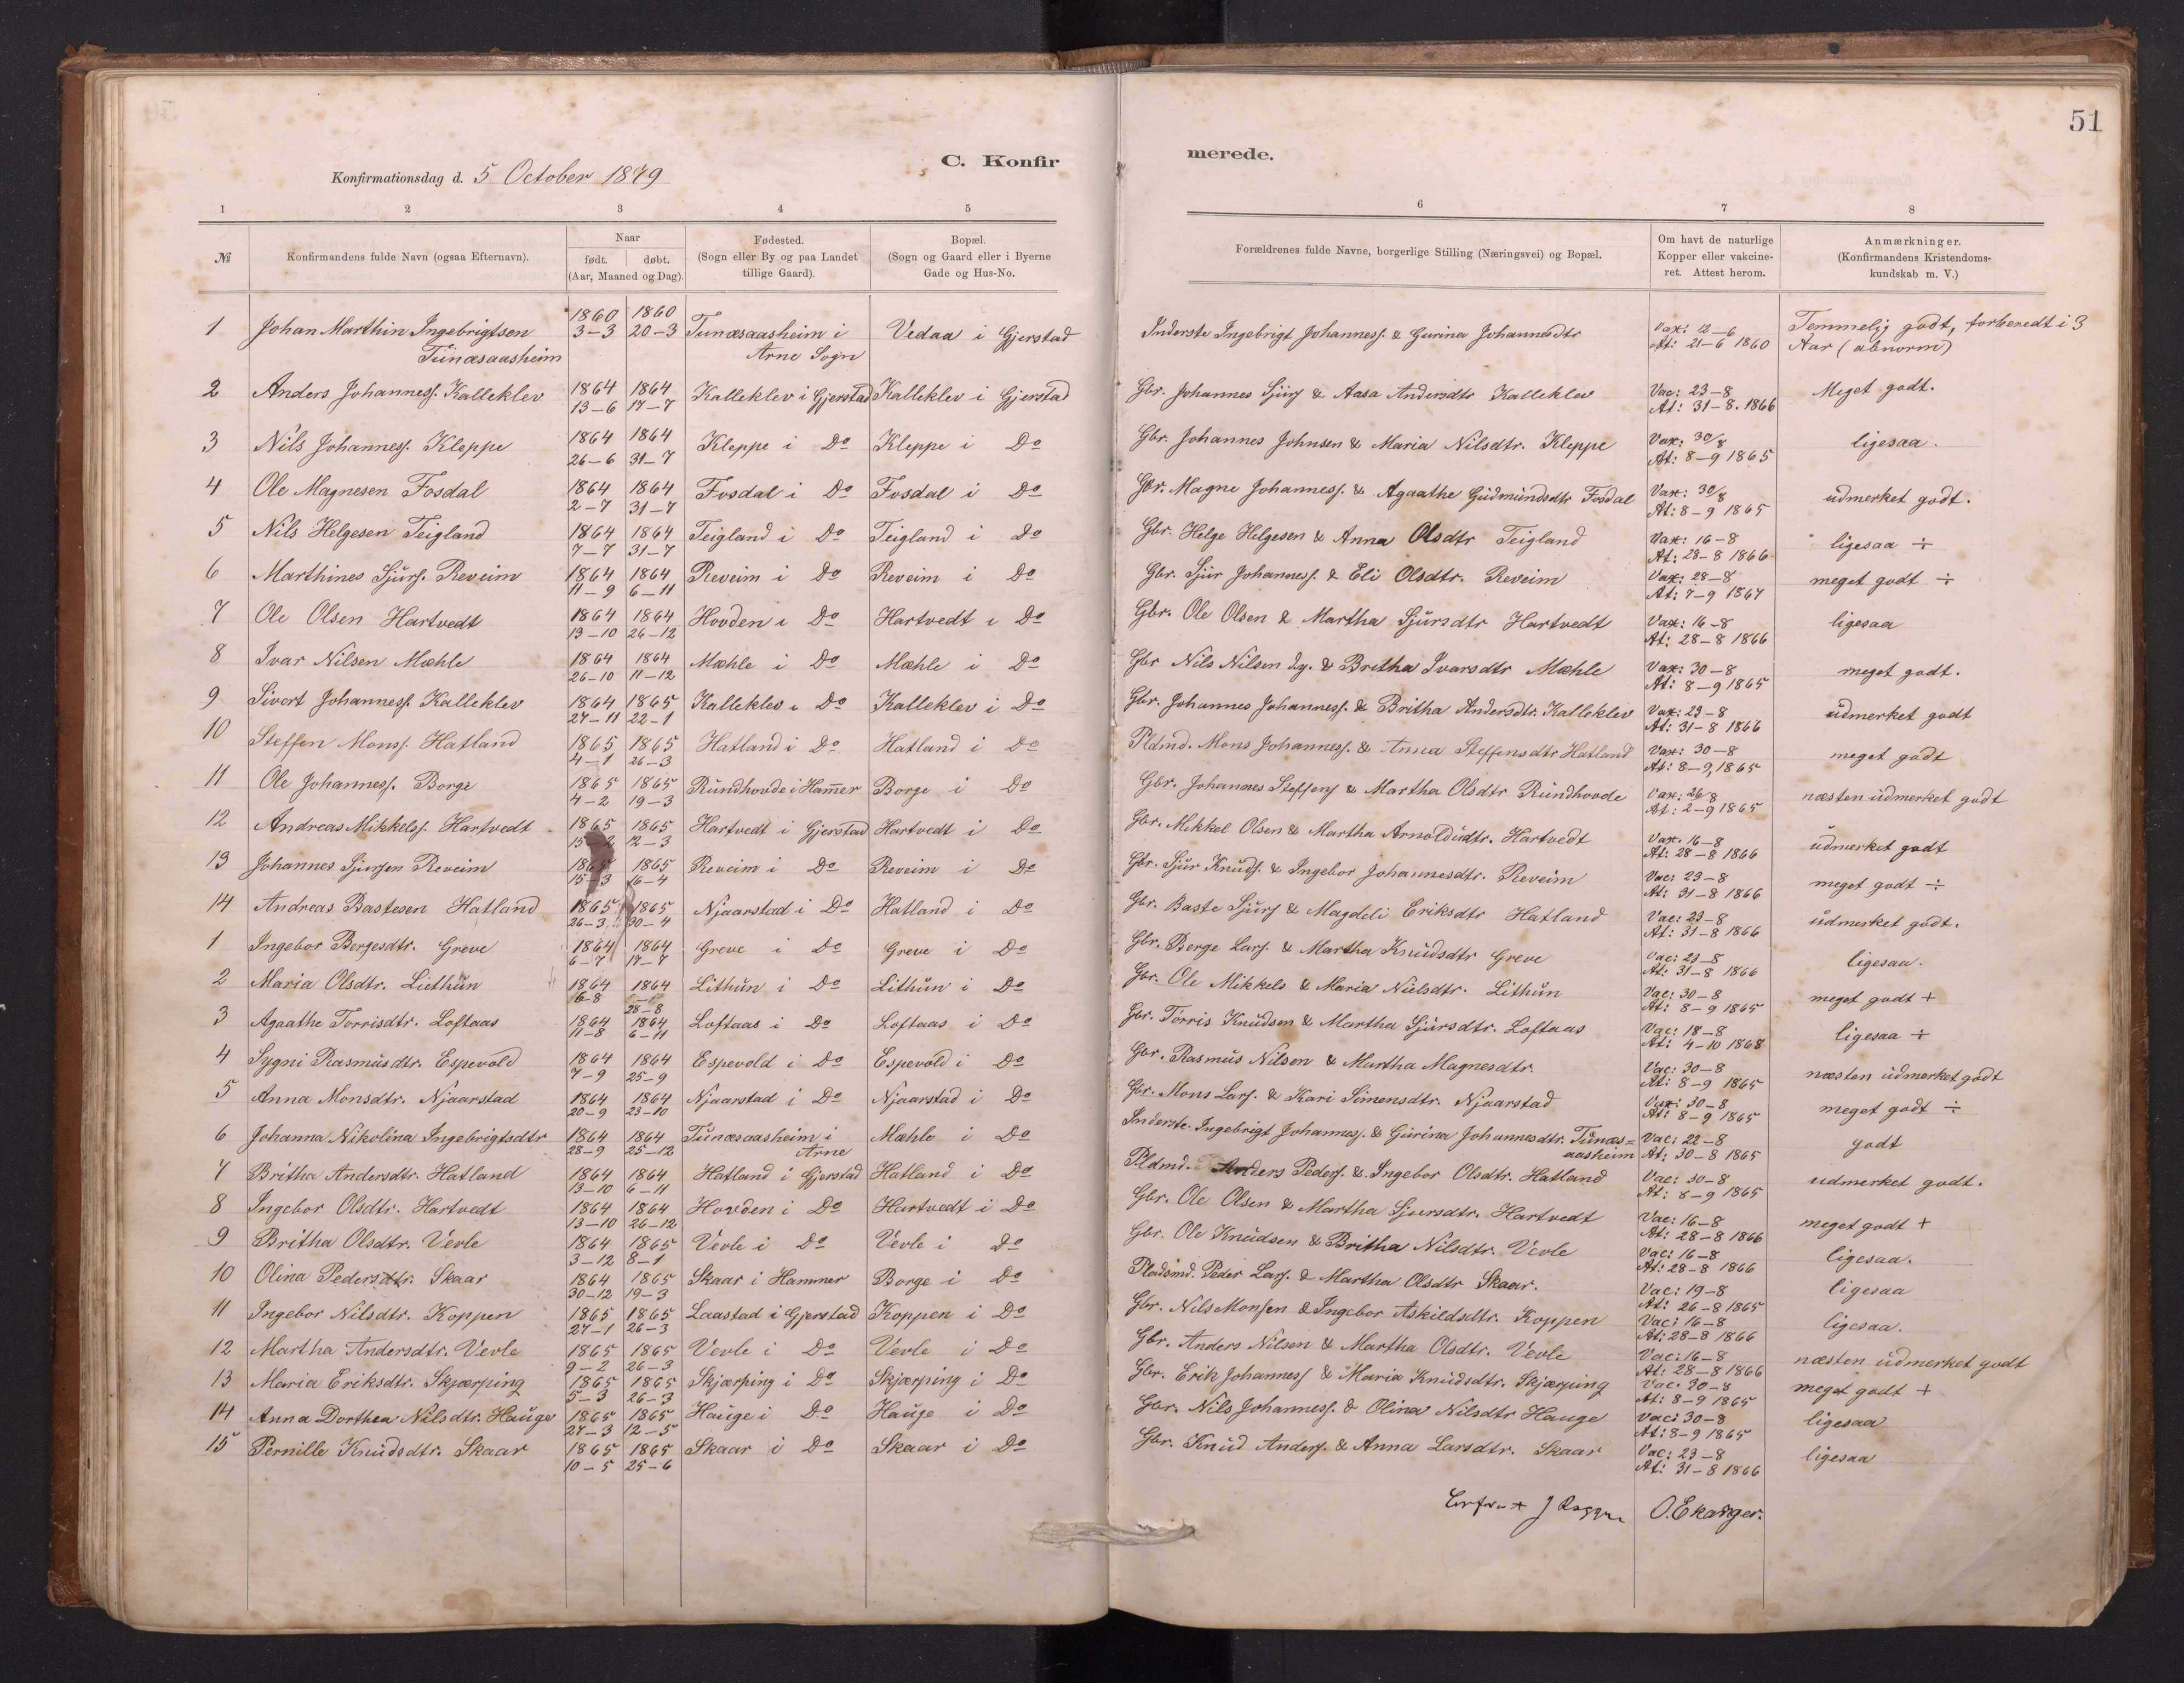 51
C. Konfirmerede.
Konfirmationsdag d. 5 October 1879
1 2 3 4 5 6 7 8
№ Konfirmandens fulde Navn (ogsaa Efternavn). Naar født. døbt. (Aar, Maaned og Dag). Fødested. (Sogn eller By og paa Landet tillige Gaard). Bopæl. (Sogn og Gaard eller i Byerne Gade og Hus-No. Forældrenes fulde Navne, borgerlige Stilling (Næringsvei) og Bopæl. Om havt de naturlige Kopper eller vakcineret. Attest herom. Anmærkninger. (Konfirmandens Kristendomskundskab m. V.)
1 Johan Marthin Ingebrigtsen Tunæsaasheim 1860 3-3 1860 20-3 Tunæsaasheim i Arne Sogn Vedaa i Gjerstad Inderste Ingebrigt Johannesſ. & Gurina Johannesdtr Vax: 12-6 At: 21-6 1860 Temmelig godt, forberedt i 3 Aar (abnorm)
2 Anders Johannesſ. Kalleklev 1864 13-6 1864 17-7 Kalleklev i Gjerstad Kalleklev i Gjerstad Gbr. Johannes Sjurſ & Aasa Andersdtr Kalleklev Vac: 23-8 At: 31-8. 1866 Meget godt.
3 Nils Johannesſ. Kleppe 1864 26-6 1864 31-7 Kleppe i Do Kleppe i Do Gbr. Johannes Johnsen & Maria Nilsdtr. Kleppe Vax: 30/8 At: 8-9 1865 ligesaa.
4 Ole Magnesen Fosdal 1864 2-7 1864 31-7 Fosdal i Do Fosdal i Do Gbr. Magne Johannesſ. & Agaathe Gudmundsdtr Fosdal Vax: 30/8 At: 8-9 1865 udmerket godt.
5 Nils Helgesen Teigland 1864 7-7 1864 31-7 Teigland i Do Teigland i Do Gbr. Helge Helgesen & Anna Olsdtr Teigland Vax: 16-8 At: 28-8 1866 ligesaa ÷
6 Marthines Sjurſ. Reveim 1864 11-9 1864 6-11 Reveim i Do Reveim i Do Gbr. Sjur Johannesſ. & Eli Olsdtr. Reveim Vax: 28-8 At: 7-9 1867 meget godt ÷
7 Ole Olsen Hartvedt 1864 13-10 1864 26-12 Hovden i Do Hartvedt i Do Gbr. Ole Olsen & Martha Sjursdtr Hartvedt Vax: 16-8 At: 28-8 1866 ligesaa
8 Ivar Nilsen Mæhle 1864 26-10 1864 11-12 Mæhle i Do Mæhle i Do Gbr Nils Nilsen dy. & Britha Ivarsdtr Mæhle Vax: 30-8 At: 8-9 1865 meget godt.
9 Sivort Johannesſ. Kalleklev 1864 27-11 1865 22-1 Kalleklev i Do Kalleklev i Do Gbr. Johannes Johannesſ. & Britha Andersdtr. Kalleklev Vax: 23-8 At: 31-8 1866 udmerket godt
10 Steffen Monsſ. Hatland 1865 4-1 1865 26-3 Hatland i Do Hatland i Do Pldmd. Mons Johannesſ. & Anna Steffensdtr Hatland Vax: 30-8 At: 8-9, 1865 meget godt
11 Ole Johannesſ. Borge 1865 4-2 1865 19-3 Rundhovde i Ham̅er Borge i Do Gbr. Johannes Steffenſ & Martha Olsdtr Rundhovde Vax: 26/8 At: 2-9 1865 næsten udmerket godt
12 Andreas Mikkelsſ. Hartvedt 1865 15-2 1865 12-3 Hartvedt i Gjerstad Hartvedt i Do Gbr. Mikkel Olsen & Martha Arnoldudtr. Hartvedt Vax. 16-8 At: 28-8 1866 udmerket godt
13 Johannes Sjurſen Reveim 1865 15-3 1865 16-4 Reveim i Do Reveim i Do Gbr. Sjur Knudſ. & Ingebor Johannesdtr. Reveim Vac: 23-8 At: 31-8 1866 meget godt ÷
14 Andreas Bastesen Hatland 1865 26-3 1865 30-4 Njaarstad i Do Hatland i Do Gbr. Baste Sjurſ & Magdeli Eriksdtr Hatland Vac: 23-8 At: 31-8 1866 udmerket godt.
1 Ingebor Bergesdtr. Greve 1864 6-7 1864 17-7 Greve i Do Greve i Do Gbr. Berge Larſ. & Martha Knudsdtr Greve Vac: 23-8 At: 31-8 1866 ligesaa.
2 Maria Olsdtr. Liethun 1864 6-8 1864 28-8 Lithun i Do Lithun i Do Gbr. Ole Mikkels & Maria Nielsdtr. Lithun Vac: 30-8 At: 8-9 1865 meget godt +
3 Agaathe Torrisdtr. Loftaas 1864 11-8 1864 6-11 Loftaas i Do Loftaas i Do Gbr. Torris Knudsen & Martha Sjursdtr. Loftaas Vac: 18-8 At: 4-10 1868 ligesaa ÷
4 Sygni Rasmusdtr. Espevold 1864 7-9 1864 25-9 Espevold i Do Espevold i Do Gbr. Rasmus Nilsen & Martha Magnesdtr. Vac: 30-8 At: 8-9 1865 næsten udmerket godt
5 Anna Monsdtr. Njaarstad 1864 20-9 1864 23-10 Njaarstad i Do Njaarstad i Do Gbr. Mons Larſ. & Kari Simensdtr. Njaarstad Vax: 30-8 At: 8-9 1865 meget godt ÷
6 Johanna Nikolina Ingebrigtsdtr 1864 28-9 1864 25-12 Tunæsaasheim i Arne Mæhle i Do Inderste. Ingebrigt Johannesſ. & Gurina Johannesdtr. Tunæs=aasheim Vac: 22-8 At: 30-8 1865 godt
7 Britha Andersdtr. Hatland 1864 13-10 1864 6-11 Hatland i Gjerstad Hatland i Do Pldmd. Anders Pedersſ. & Ingebor Olsdtr. Hatland Vac: 30-8 At: 8-9 1865 udmerket godt.
8 Ingebor Olsdtr. Hartvedt 1864 13-10 1864 26-12 Hovden i Do Hartvedt i Do Gbr. Ole Olsen & Martha Sjursdtr. Hartvedt Vac: 16-8 At: 28-8 1866 meget godt +
9 Britha Olsdtr. Vevle 1864 3-12 1865 8-1 Vevle i Do Vevle i Do Gbr. Ole Knudsen & Britha Nilsdtr. Vevle Vac: 16-8 At: 28-8 1866 ligesaa.
10 Olina Pedersdtr. Skaar 1864 30-12 1865 19-3 Skaar i Hammer Borge i Do Pladsmd. Peder Larſ. & Martha Olsdtr Skaar. Vac: 19-8 At: 26-8 1865 ligesaa
11 Ingebor Nilsdtr. Koppen 1865 27-1 1865 26-3 Laastad i Gjerstad Koppen i Do Gbr. Nils Monſen & Ingebor Askildsdtr. Koppen Vac: 16-8 At: 28-8 1866 ligesaa.
12 Martha Andersdtr. Vevle 1865 9-2 1865 26-3 Vevle i Do Vevle i Do Gbr. Anders Nilsen & Martha Olsdtr. Vevle Vac: 16-8 At: 28-8 1866 næsten udmerket godt
13 Maria Eriksdtr. Skjærping 1865 5-3 1865 26-3 Skjærping i Do Skjærping i Do Gbr. Erik Johannesſ & Maria Knudsdtr. Skjærping Vac. 30-8 At: 8-9 1865 meget godt +
14 Anna Dorthea Nilsdtr. Hauge 1865 27-3 1865 12-5 Hauge i Do Hauge i Do Gbr. Nils Johannesſ. & Olina Nilsdtr Hauge Vac: 30-8 At: 8-9 1865 ligesaa
15 Pernille Knudsdtr. Skaar 1865 10-5 1865 25-6 Skaar i Do Skaar i Do Gbr. Knud Andersſ. & Anna Larsdtr. Skaar Vac: 23-8 At: 31-8 1866 ligesaa